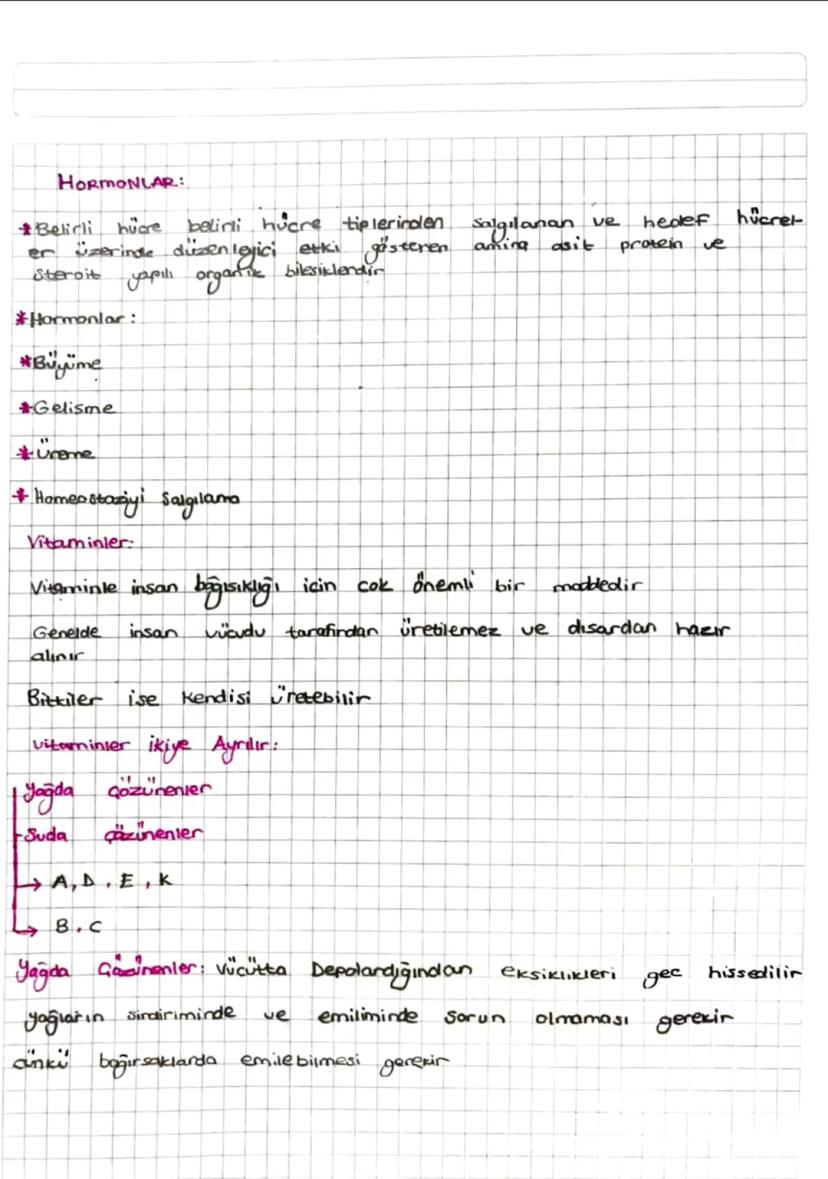 HORMONLAR:
*Belirli hücre belirli hücre tiplerinden salgılanan ve hedef hücrel
er üzerinde düzenleyici etki gösteren amino asit protein ve
Steroit yapılı organik bilesiklerdir
*Hormonlar:
*Büyüme
*Gelisme
*Üreme
*Homeostaziyi Salgılama
Vitaminler:
Vitaminle insan bağısıklığı icin cok önemli bir maddedir
Genelde insan vücudu tarafından üretilemez ve dısardan hazır
alınır
Bitkiler ise kendisi üretebilir
vitaminler ikiye Ayrılır:
Yağda çözünenler
Suda çözünenler
→ A, D, E, K
→ B, C
Yağda Çözünenler: Vücütta Depolandığından eksiklikleri gec hissedilir
yağların sindiriminde ve emiliminde sorun olmaması gerekir
cünkü bağırsaklarda emilebilmesi gerekir